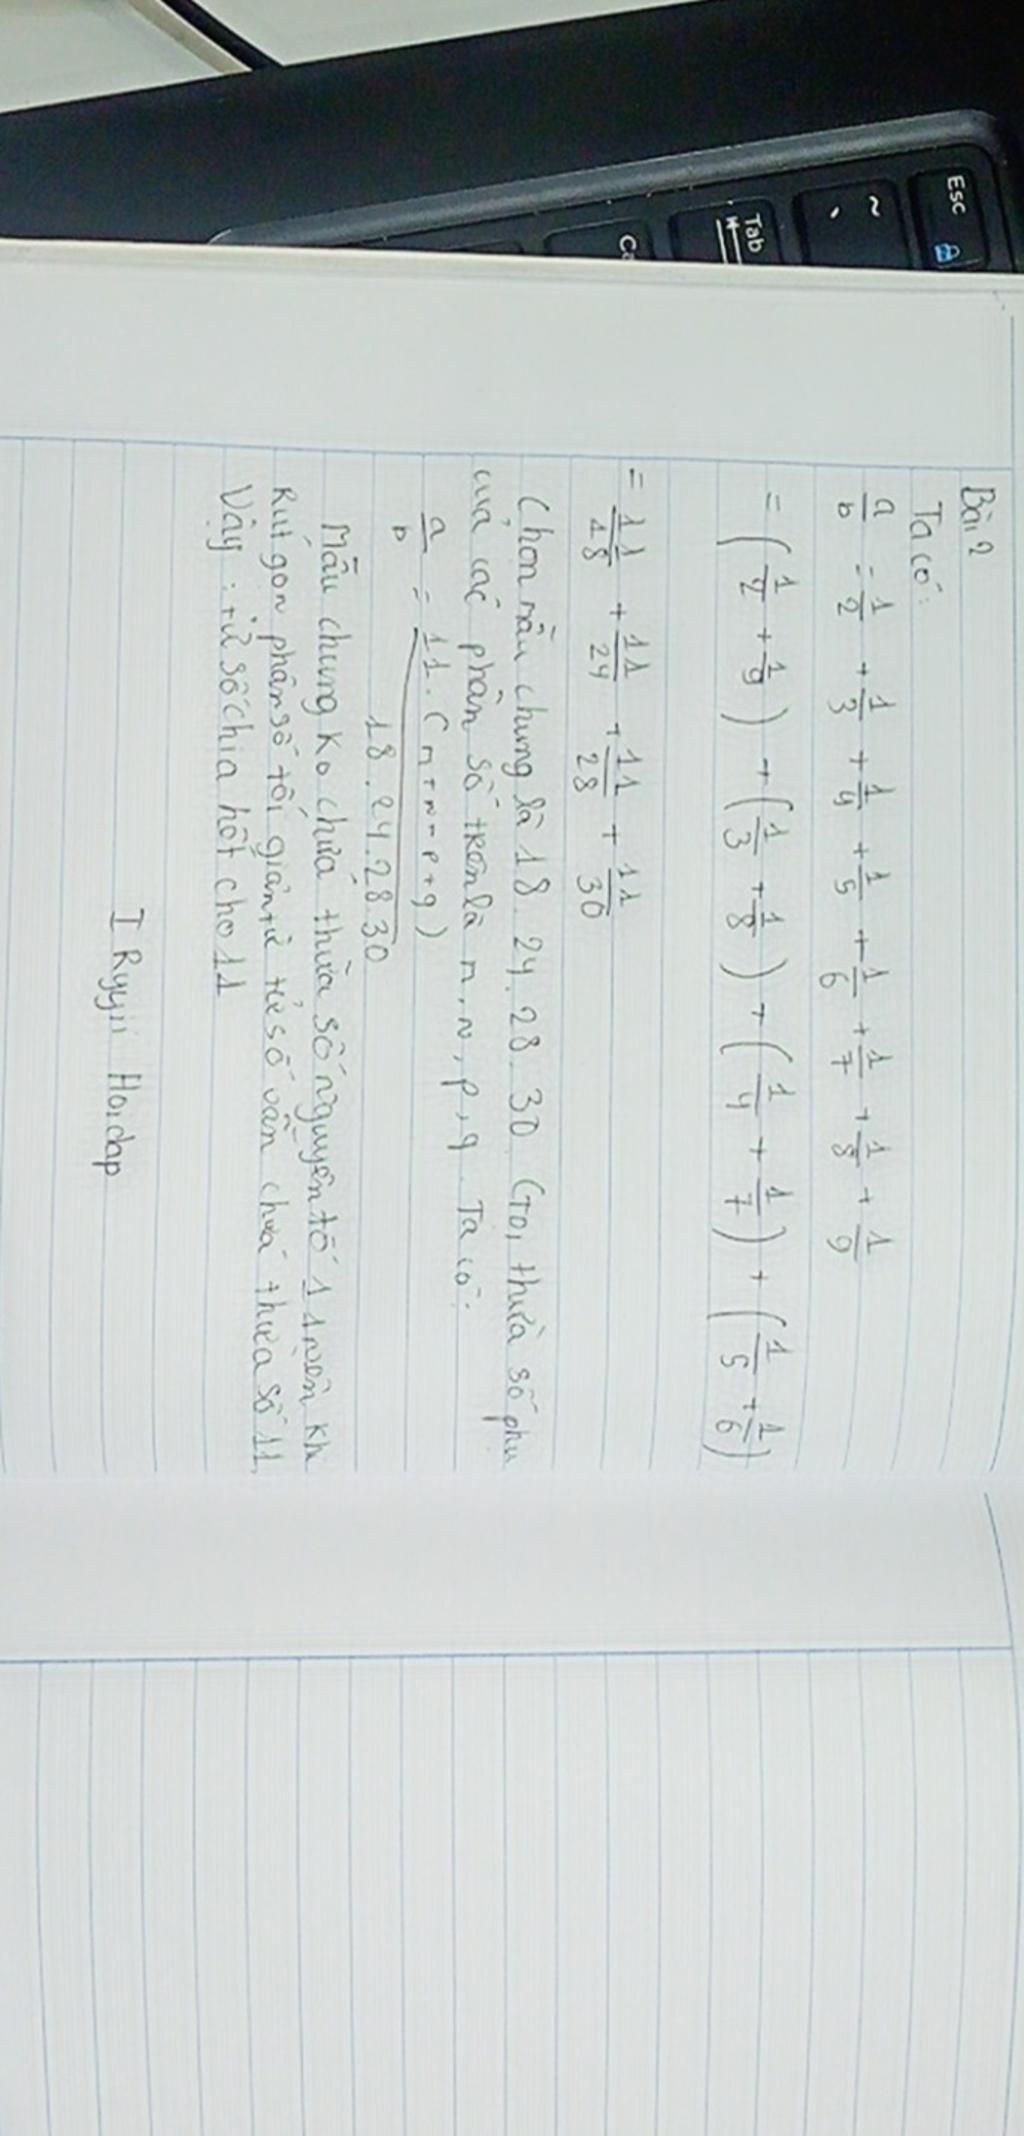 Esc
~
`
Tab
Ca
Bài 2
Ta có:
a/b = 1/2 + 1/3 + 1/4 + 1/5 + 1/6 + 1/7 + 1/8 + 1/9
= (1/2 + 1/9) + (1/3 + 1/8) + (1/4 + 1/7) + (1/5 + 1/6)
= 11/18 + 11/24 + 11/28 + 11/30
Chọn mẫu chung là 18.24.28.30 (Gọi thừa số phụ
của các phân số trên là m, n, p, q. Ta có:
a/b = 11.(m+n+p+q)/18.24.28.30
Mẫu chung ko chứa thừa số nguyên tố 11 nên khi
Rút gọn phân số tối giản tử số vẫn chứa thừa số 11.
Vậy: tử số chia hết cho 11
I Ryyii Hoidap